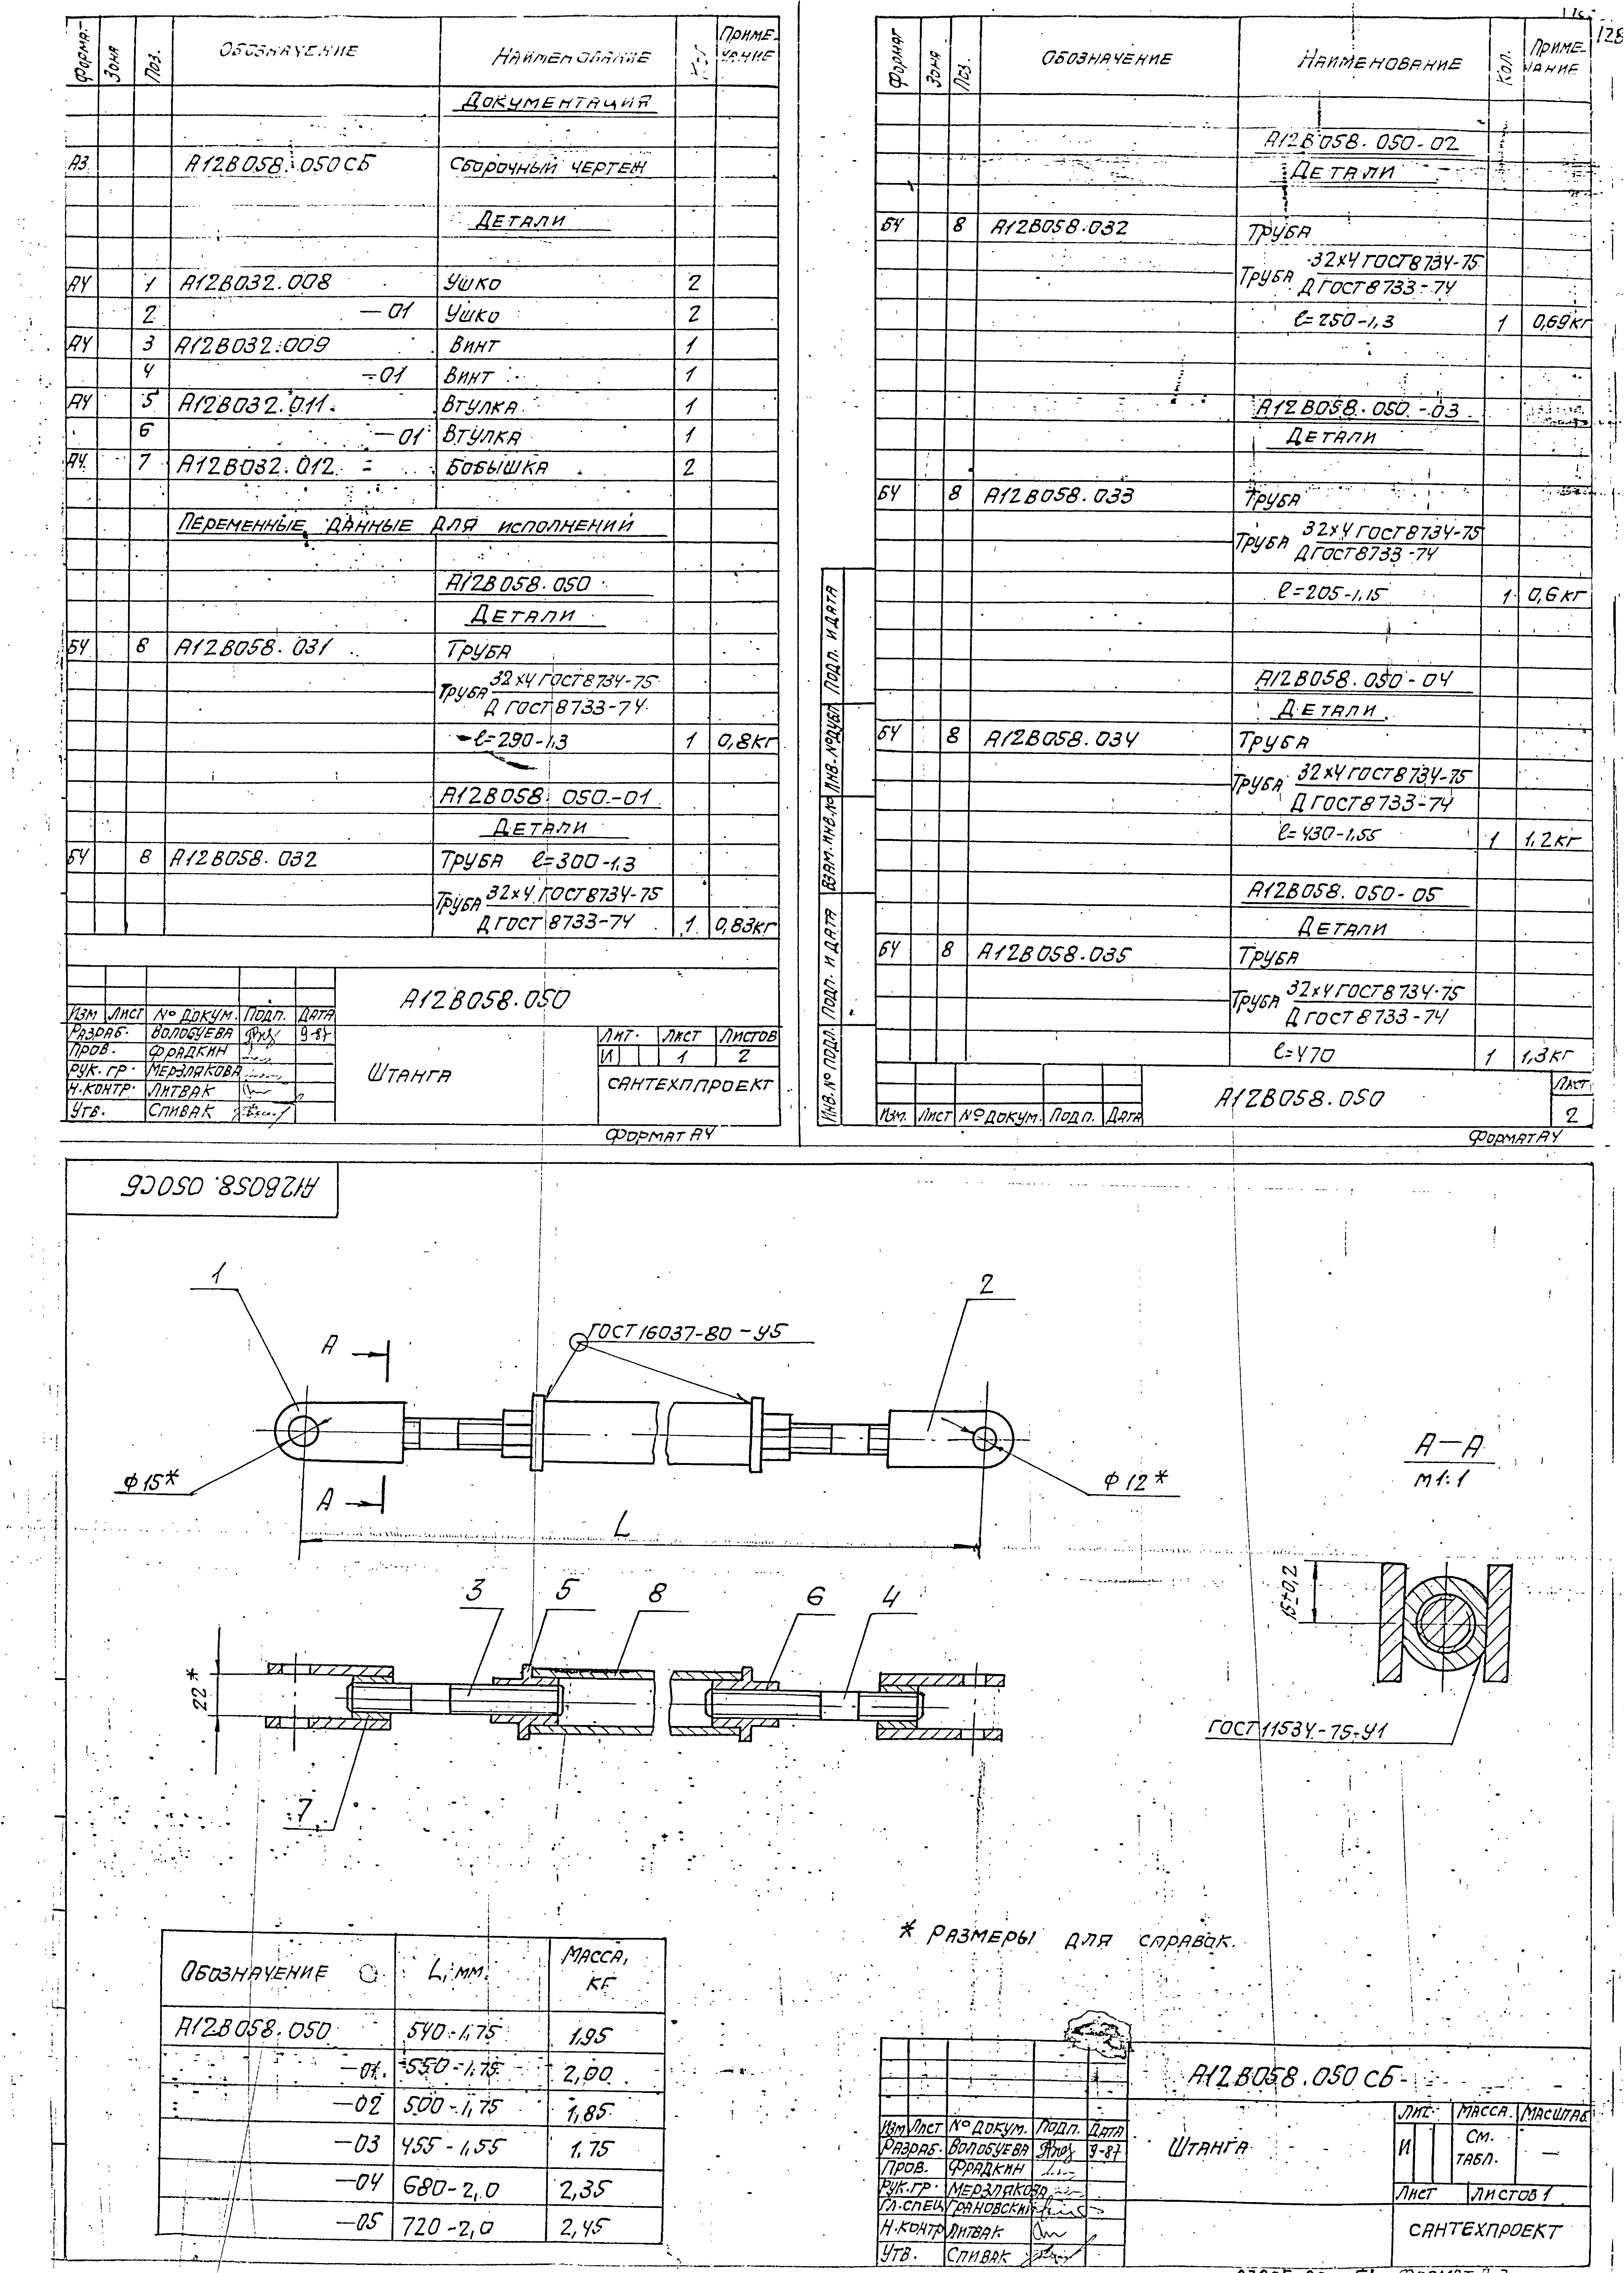 Формат Зона Поз. Обозначение Наименование Кол. Приме-чание
Документация
А3 А12В058.050СБ Сборочный чертеж
Детали
А4 1 А12В032.008 Ушко 2
2 -01 Ушко 2
А4 3 А12В032.009 Винт 1
4 -01 Винт 1
А4 5 А12В032.011. Втулка 1
6 -01 Втулка 1
А4 7 А12В032.012 Бобышка 2
Переменные данные для исполнений
А12В058.050
Детали
БЧ 8 А12В058.031 Труба
Труба 32х4 ГОСТ 8734-75
Д ГОСТ 8733-74
ℓ=290-1,3 1 0,8кг
А12В058.050-01
Детали
БЧ 8 А12В058.032 Труба ℓ=300-1,3
Труба 32х4 ГОСТ 8734-75
Д ГОСТ 8733-74 1 0,83кг
А12В058.050
Изм Лист № докум. Подп. Дата
Разраб. Волобуева 9-87
Пров. Фрадкин
Рук. гр. Мерзлякова
Н.контр. Литвак
Утв. Спивак
Штанга
Лит. Лист Листов
И 1 2
Сантехппроект
Формат А4
128
Формат Зона Поз. Обозначение Наименование Кол. Приме-чание
А12В058.050-02
Детали
БЧ 8 А12В058.032 Труба
Труба 32х4 ГОСТ 8734-75
Д ГОСТ 8733-74
ℓ=250-1,3 1 0,69кг
А12В058.050-03
Детали
БЧ 8 А12В058.033 Труба
Труба 32х4 ГОСТ 8734-75
Д ГОСТ 8733-74
ℓ=205-1,15 1 0,6кг
А12В058.050-04
Детали
БЧ 8 А12В058.034 Труба
Труба 32х4 ГОСТ 8734-75
Д ГОСТ 8733-74
ℓ=430-1,55 1 1,2кг
А12В058.050-05
Детали
БЧ 8 А12В058.035 Труба
Труба 32х4 ГОСТ 8734-75
Д ГОСТ 8733-74
ℓ=470 1 1,3кг
Инв.№ подл. Подп. и дата Взам.инв.№ Инв.№дубл Подп. и дата
Изм. Лист № докум. Подп. Дата
А12В058.050
Лист
2
Формат А4
А12В058.050СБ
1
2
А
ГОСТ 16037-80-У5
ф15*
ф12*
А
L
А-А
М1:1
3 5 8 6 4
22*
7
15±0,2
ГОСТ 11534-75-У1
* Размеры для справок.
Обозначение L, мм. Масса, кг
А12В058.050 540-1,75 1,95
-01 550-1,75 2,00
-02 500-1,75 1,85
-03 455-1,55 1,75
-04 680-2,0 2,35
-05 720-2,0 2,45
А12В058.050 СБ
Изм Лист № докум. Подп. Дата
Разраб. Волобуева 9-87
Пров. Фрадкин
Рук.гр. Мерзлякова
Гл.спец Грановский
Н.контр Литвак
Утв. Спивак
Штанга
Лит. Масса Масштаб
И см. табл. —
Лист Листов 1
Сантехпроект